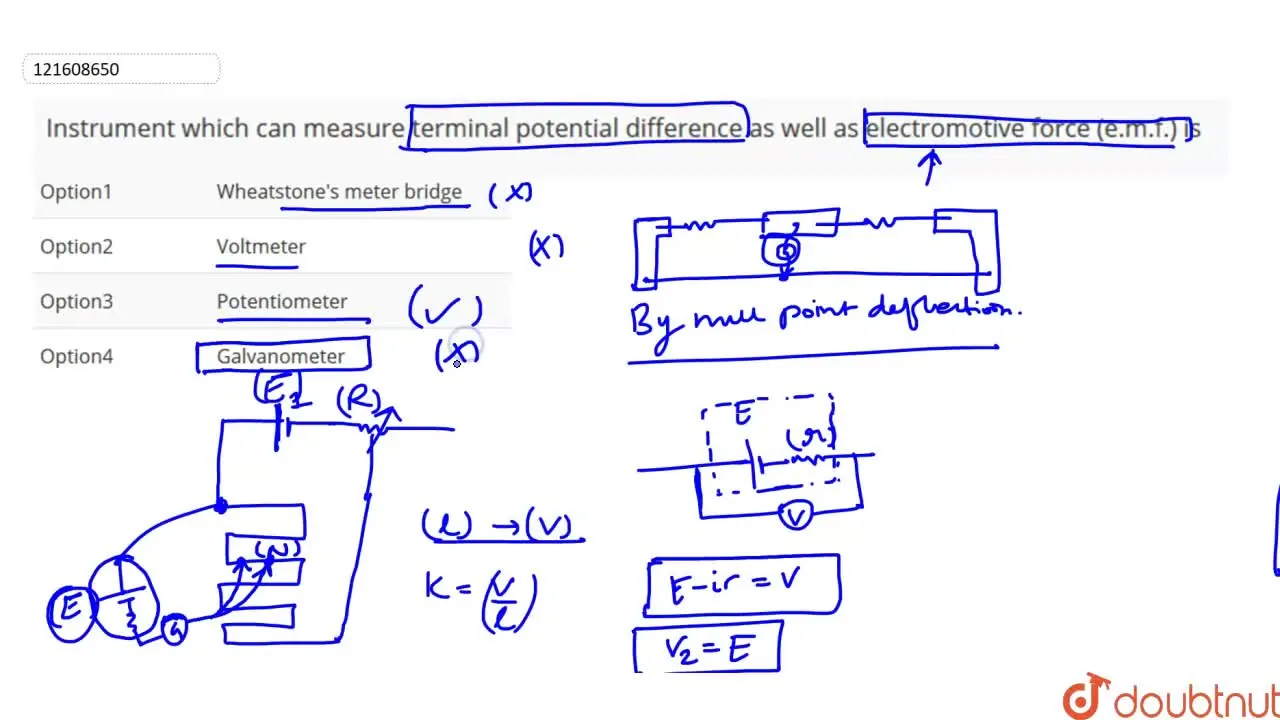 121608650
Instrument which can measure terminal potential difference as well as electromotive force (e.m.f.) is
Option1 Wheatstone's meter bridge (X)
Option2 Voltmeter (X)
Option3 Potentiometer (✓)
Option4 Galvanometer (X)
G
By null point deflection.
E1 (R)
(N)
E
G
(l) → (V)
K = (V/l)
E
(r)
V
E - ir = V
V2 = E
doubtnut